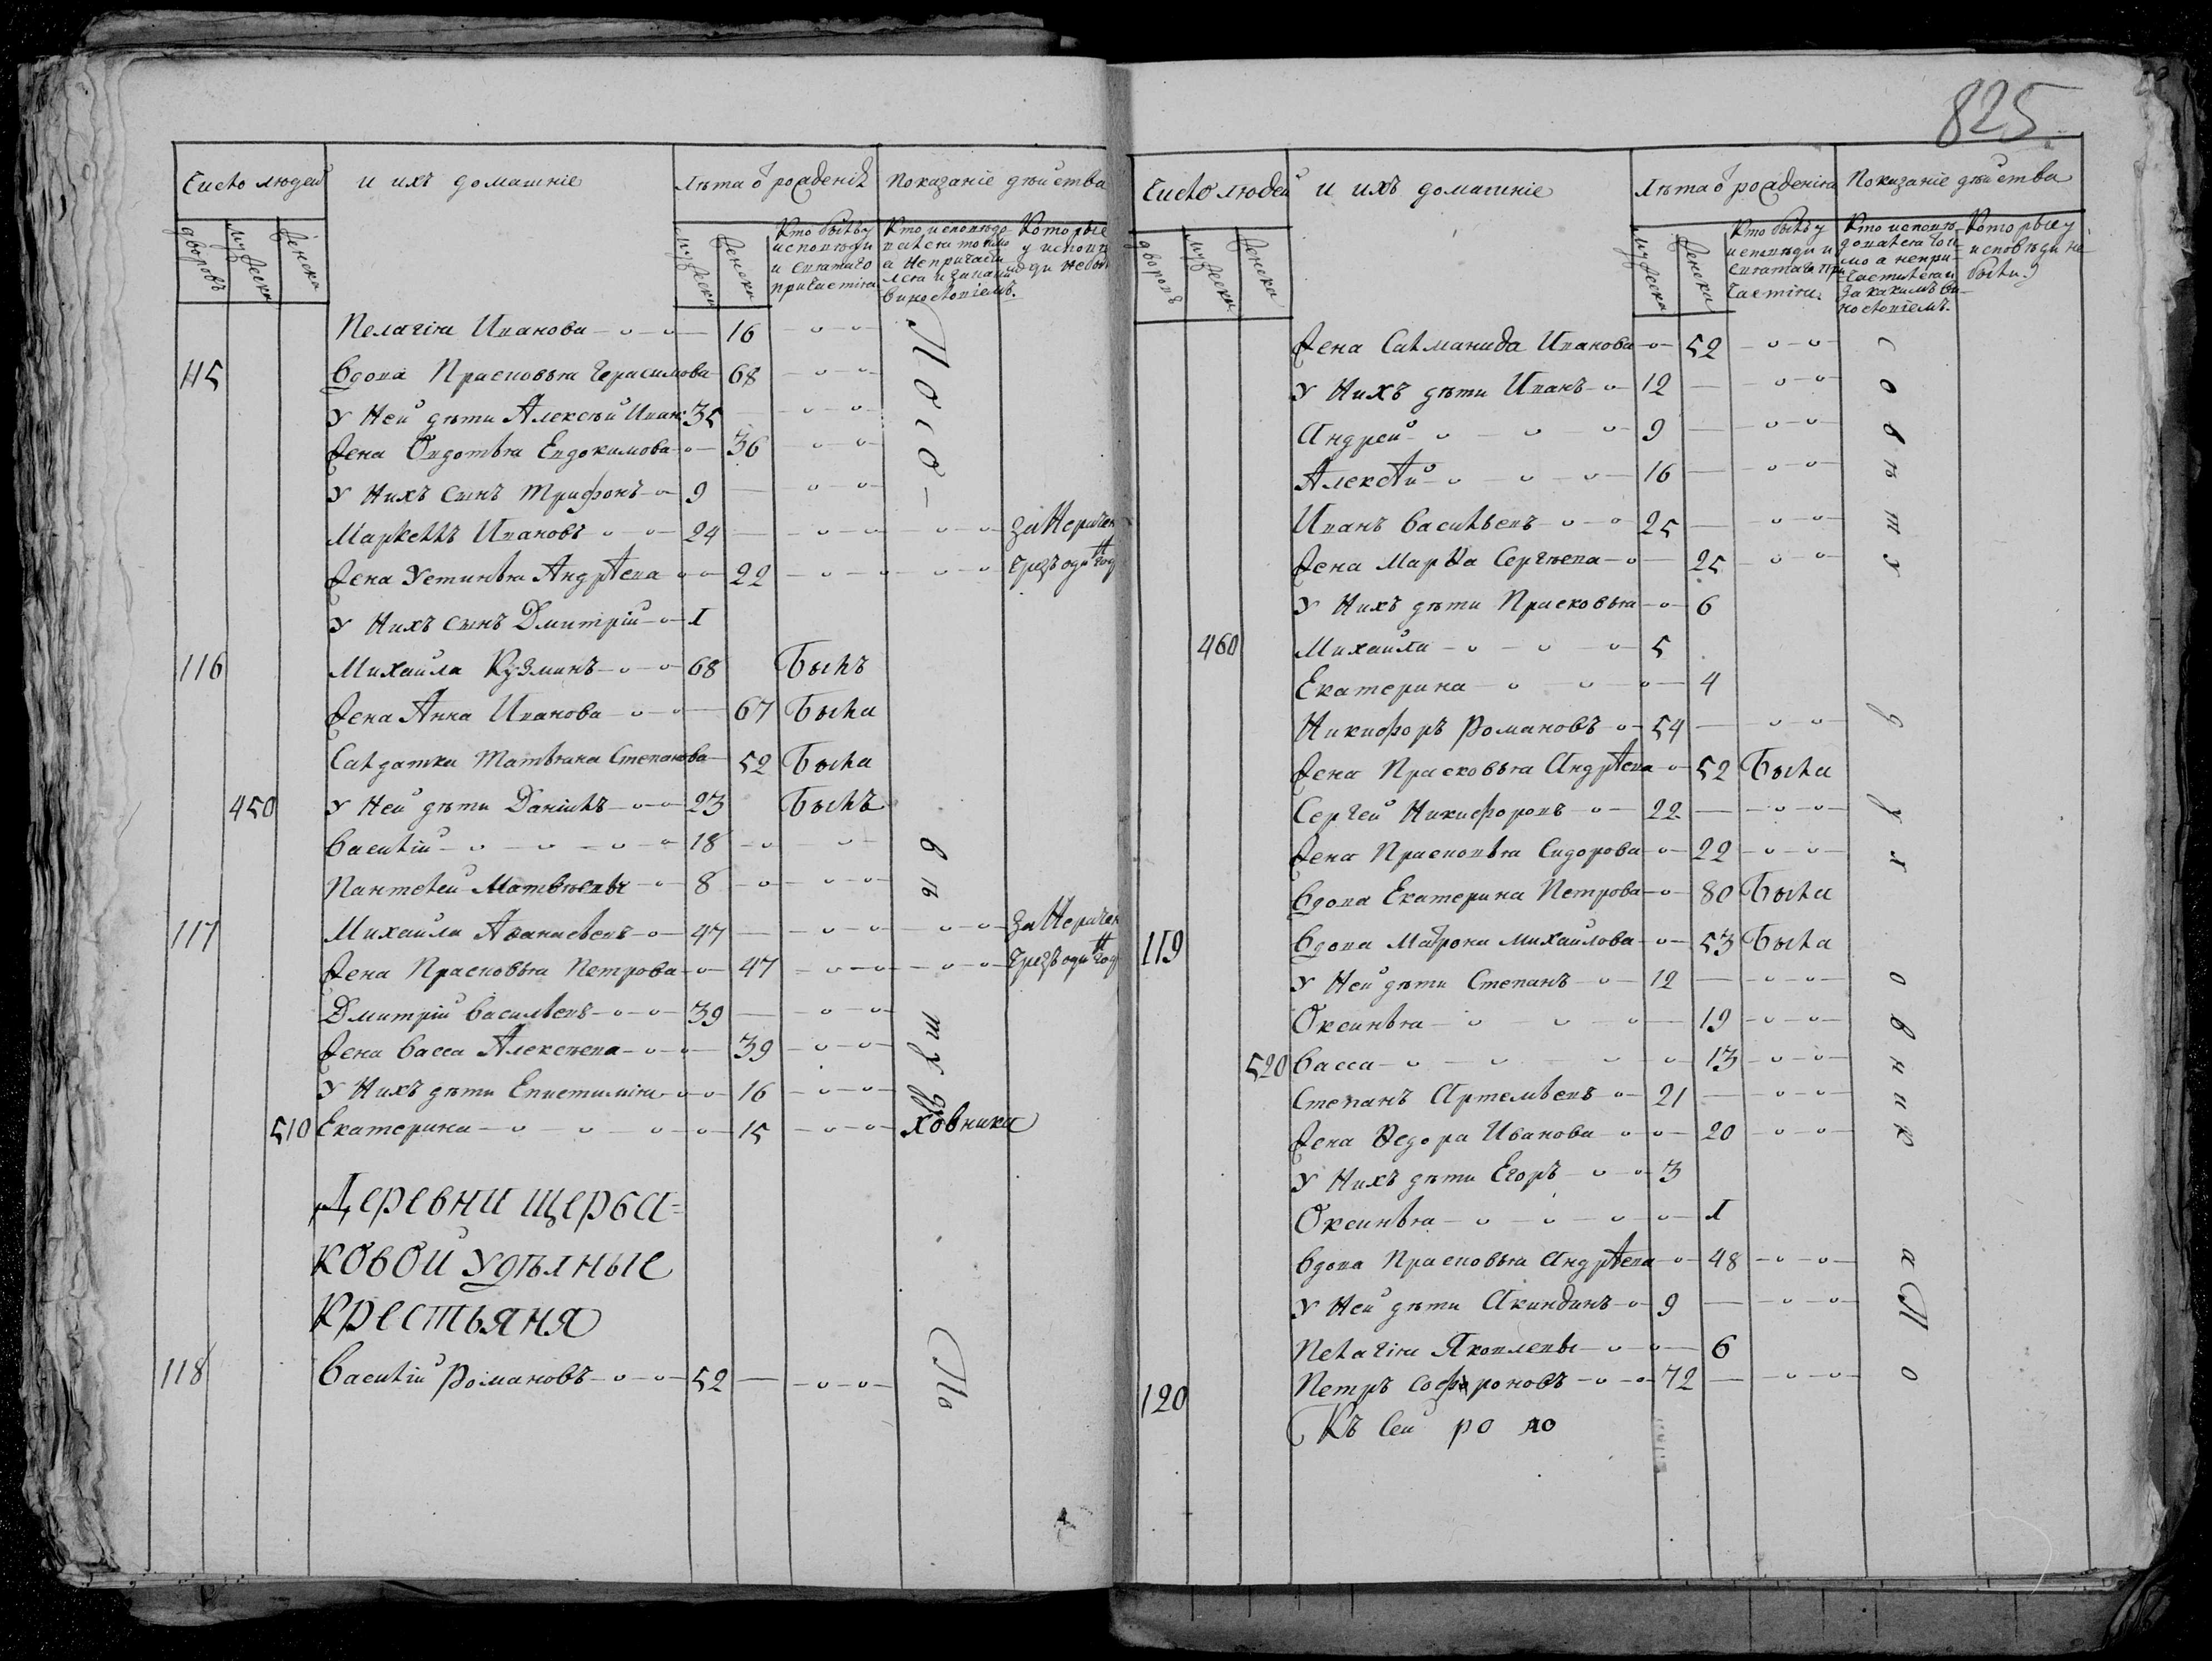 Число людей и ихъ домашніе Лѣта ѿ рожденія Показаніе дѣйства
дворовъ мужеска женска мужеска женска Кто былъ у исповѣди и святаго причастія Кто исповѣдался токмо а не причастился и за какимъ винословіемъ. Которые у исповѣди не были
Пелагія Иванова 16
115 Вдова Прасковья Герасимова 68
У Ней дѣти Алексѣй Иван 35
Жена Овдотья Евдокимова 36
У Нихъ сынъ Трифонъ 9
Маркеллъ Ивановъ 24 за Нерачен
Жена Устинья Андрѣева 22 Чрезъ один год
У Нихъ сынъ Дмитрій 1
116 Михаила Кузминъ 68 Былъ
Жена Анна Иванова 67 Была
Салдатка Татьяна Степанова 52 Была
450 У Ней дѣти Данилъ 23 Былъ
Василій 18
Пантелей Матвѣевы 8
117 Михаила Аѳанасьевъ 47 за Нерачен
Жена Прасковья Петрова 47 Чрезъ один год
Дмитрій Васильевъ 39
Жена Васса Алексѣева 39
У Нихъ дѣти Епистимія 16
510 Екатерина 15
По со вѣ ту д ховника
Деревни Щерба-
ковой удѣлные
крестьяня
118 Василій Романовъ 52
По
825
Число людей и ихъ домашніе Лѣта ѿ рожденія Показаніе дѣйства
дворовъ мужеска женска мужеска женска Кто былъ у исповѣди и святаго причастія. Кто исповѣдался токмо а не причастился и за какимъ виносло́віемъ. Которые у исповѣди не были
Жена Салманида Иванова 52
У Нихъ дѣти Иванъ 12
Андрей 9
Алексѣй 16
Иванъ Васильевъ 25
Жена Марѳа Сергѣева 25
У Нихъ дѣти Прасковья 6
460 Михаила 5
Екатерина 4
Никифоръ Романовъ 54
Жена Прасковья Андрѣева 52 Была
Сергей Никифоровъ 22
Жена Прасковья Сидорова 22
Вдова Екатерина Петрова 80 Была
119 Вдова Матрона Михайлова 53 Была
У Ней дѣти Степанъ 12
Оксинья 19
520 Васса 13
Степанъ Артемьевъ 21
Жена Ѳедора Иванова 20
У Нихъ дѣти Егоръ 3
Оксинья 1
Вдова Прасковья Андрѣева 48
У Ней дѣти Акиндинъ 9
Пелагія Яковлевы 6
120 Петръ Софроновъ 72
с о в ѣ т у д у х о в н и к а По
Къ сей ро по